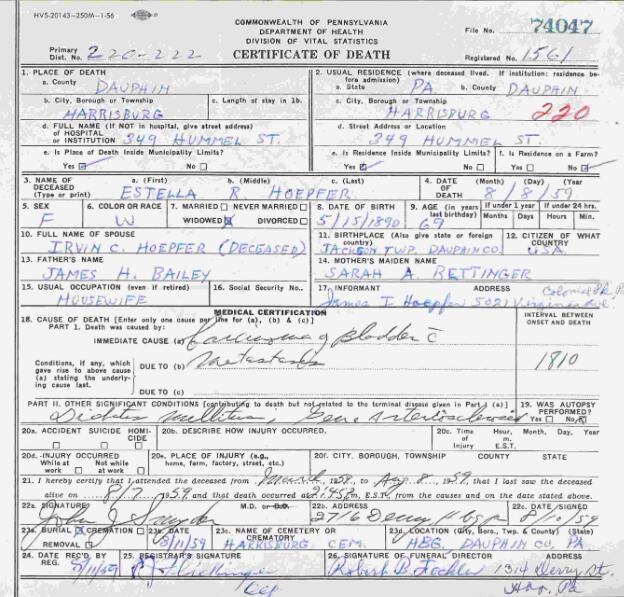 HVS-20143-250M-1-56
COMMONWEALTH OF PENNSYLVANIA
DEPARTMENT OF HEALTH
DIVISION OF VITAL STATISTICS
CERTIFICATE OF DEATH
File No. 74047
Primary Dist. No. 220-222
Registered No. 1561
1. PLACE OF DEATH
a. County
DAUPHIN
b. City, Borough or Township
HARRISBURG
c. Length of stay in 1b.
d. FULL NAME (If NOT in hospital, give street address) OF HOSPITAL OR INSTITUTION 349 HUMMEL ST.
e. Is Place of Death Inside Municipality Limits?
Yes No
2. USUAL RESIDENCE (where deceased lived. If institution: residence before admission)
a. State PA. b. County DAUPHIN
c. City, Borough or Township
HARRISBURG 220
d. Street Address or Location
349 HUMMEL ST.
e. Is Residence Inside Municipality Limits?
Yes No
f. Is Residence on a Farm?
Yes No
3. NAME OF DECEASED (Type or print)
a. (First) b. (Middle) c. (Last)
ESTELLA R HOEPFER
4. DATE OF DEATH (Month) (Day) (Year)
8/8/59
5. SEX
F
6. COLOR OR RACE
W
7. MARRIED NEVER MARRIED
WIDOWED DIVORCED
8. DATE OF BIRTH
5/15/1890
9. AGE (in years last birthday)
69
If under 1 year
Months Days
If under 24 hrs.
Hours Min.
10. FULL NAME OF SPOUSE
IRVIN C. HOEPFER (DECEASED)
11. BIRTHPLACE (Also give state or foreign country)
JACKSON TWP. DAUPHIN CO.
12. CITIZEN OF WHAT COUNTRY
USA.
13. FATHER'S NAME
JAMES H. BAILEY
14. MOTHER'S MAIDEN NAME
SARAH A RETTINGER
15. USUAL OCCUPATION (even if retired)
HOUSEWIFE
16. Social Security No.
17. INFORMANT ADDRESS
James I. Hoepfer 5021 Virginia Ave
MEDICAL CERTIFICATION
18. CAUSE OF DEATH [Enter only one cause per line for (a), (b) & (c)]
PART 1. Death was caused by:
INTERVAL BETWEEN ONSET AND DEATH
IMMEDIATE CAUSE (a) Carcinoma of Bladder c̄
Conditions, if any, which gave rise to above cause (a) stating the underlying cause last.
DUE TO (b) Metastasis
1810
DUE TO (c)
PART II. OTHER SIGNIFICANT CONDITIONS [contributing to death but not related to the terminal disease given in Part I (a)]
19. WAS AUTOPSY PERFORMED?
Yes No
20a. ACCIDENT SUICIDE HOMICIDE
20b. DESCRIBE HOW INJURY OCCURRED.
20c. Time of Injury Hour, m. E.S.T. Month, Day, Year
20d. INJURY OCCURRED
While at work Not while at work
20e. PLACE OF INJURY (e.g., home, farm, factory, street, etc.)
20f. CITY, BOROUGH, TOWNSHIP COUNTY STATE
21. I hereby certify that I attended the deceased from March, 1959, to Aug 8, 1959, that I last saw the deceased
alive on 8/7 1959 and that death occurred at m., E.S.T., from the causes and on the date stated above.
22a. SIGNATURE M.D. or D.O.
22b. ADDRESS
2716 Derry
22c. DATE SIGNED
8/10/59
23a. BURIAL CREMATION REMOVAL
23b. DATE
8/11/59
23c. NAME OF CEMETERY OR CREMATORY
HARRISBURG CEM.
23d. LOCATION (City, Boro., Twp. & County) (State)
HBG. DAUPHIN CO. PA
24. DATE REC'D BY REG.
8/11/59
25. REGISTRAR'S SIGNATURE
26. SIGNATURE OF FUNERAL DIRECTOR ADDRESS
Robert B. 1314 Derry St.